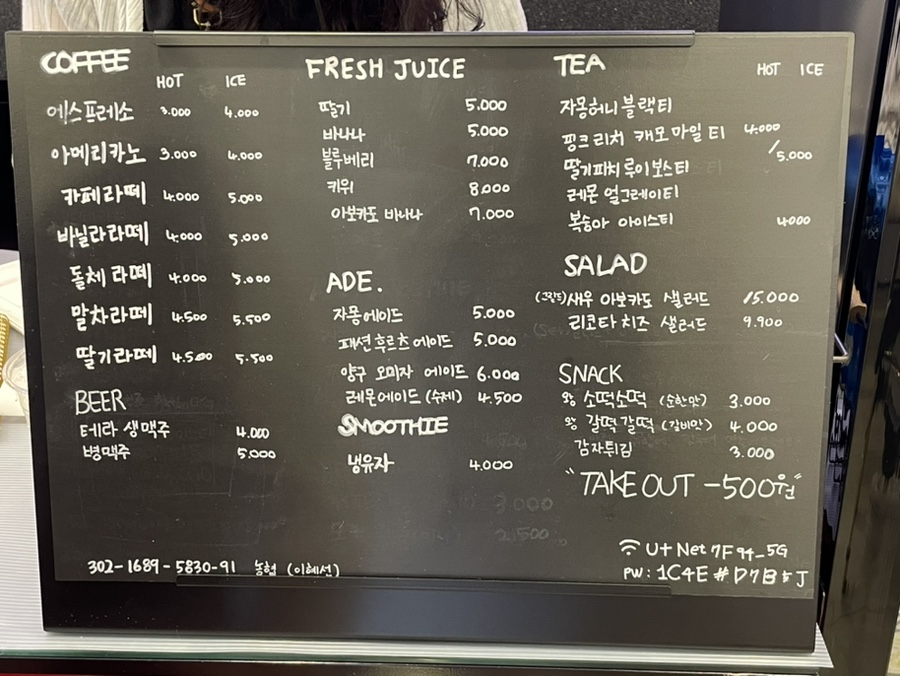 COFFEE
HOT ICE
에스프레소 3.000 4.000
아메리카노 3.000 4.000
카페라떼 4.000 5.000
바닐라라떼 4.000 5.000
돌체라떼 4.000 5.000
말차라떼 4.500 5.500
딸기라떼 4.500 5.500
BEER
테라 생맥주 4.000
병맥주 5.000
302-1689-5830-91 농협 (이혜선)
FRESH JUICE
딸기 5.000
바나나 5.000
블루베리 7.000
키위 8.000
아보카도 바나나 7.000
ADE.
자몽에이드 5.000
패션후르츠에이드 5.000
양구 오미자 에이드 6.000
레몬에이드 (수제) 4.500
SMOOTHIE
냉유자 4.000
3.000
2.500
TEA
HOT ICE
자몽허니블랙티
핑크리치 캐모마일티 4.000
/5.000
딸기피치루이보스티
레몬 얼그레이티
복숭아 아이스티 4000
SALAD
새우 아보카도 샐러드 15.000
리코타치즈 샐러드 9.900
SNACK
왕 소떡소떡 (순한맛) 3.000
왕 갈떡갈떡 (갈비맛) 4.000
감자튀김 3.000
"TAKE OUT -500원"
U+ Net 7F94_5G
PW: 1C4E#D7B